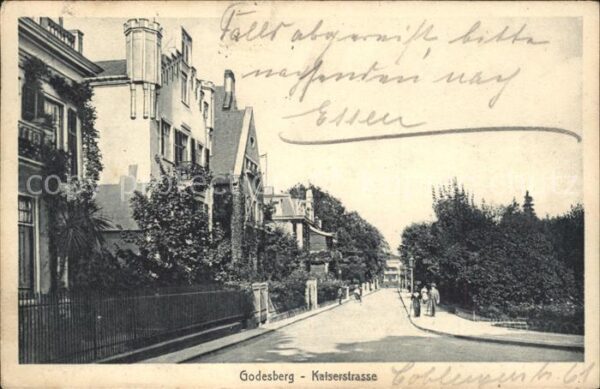 Falls abgereist, bitte
nachsenden nach
Essen
Godesberg - Kaiserstrasse
Coblenzerstr. 61